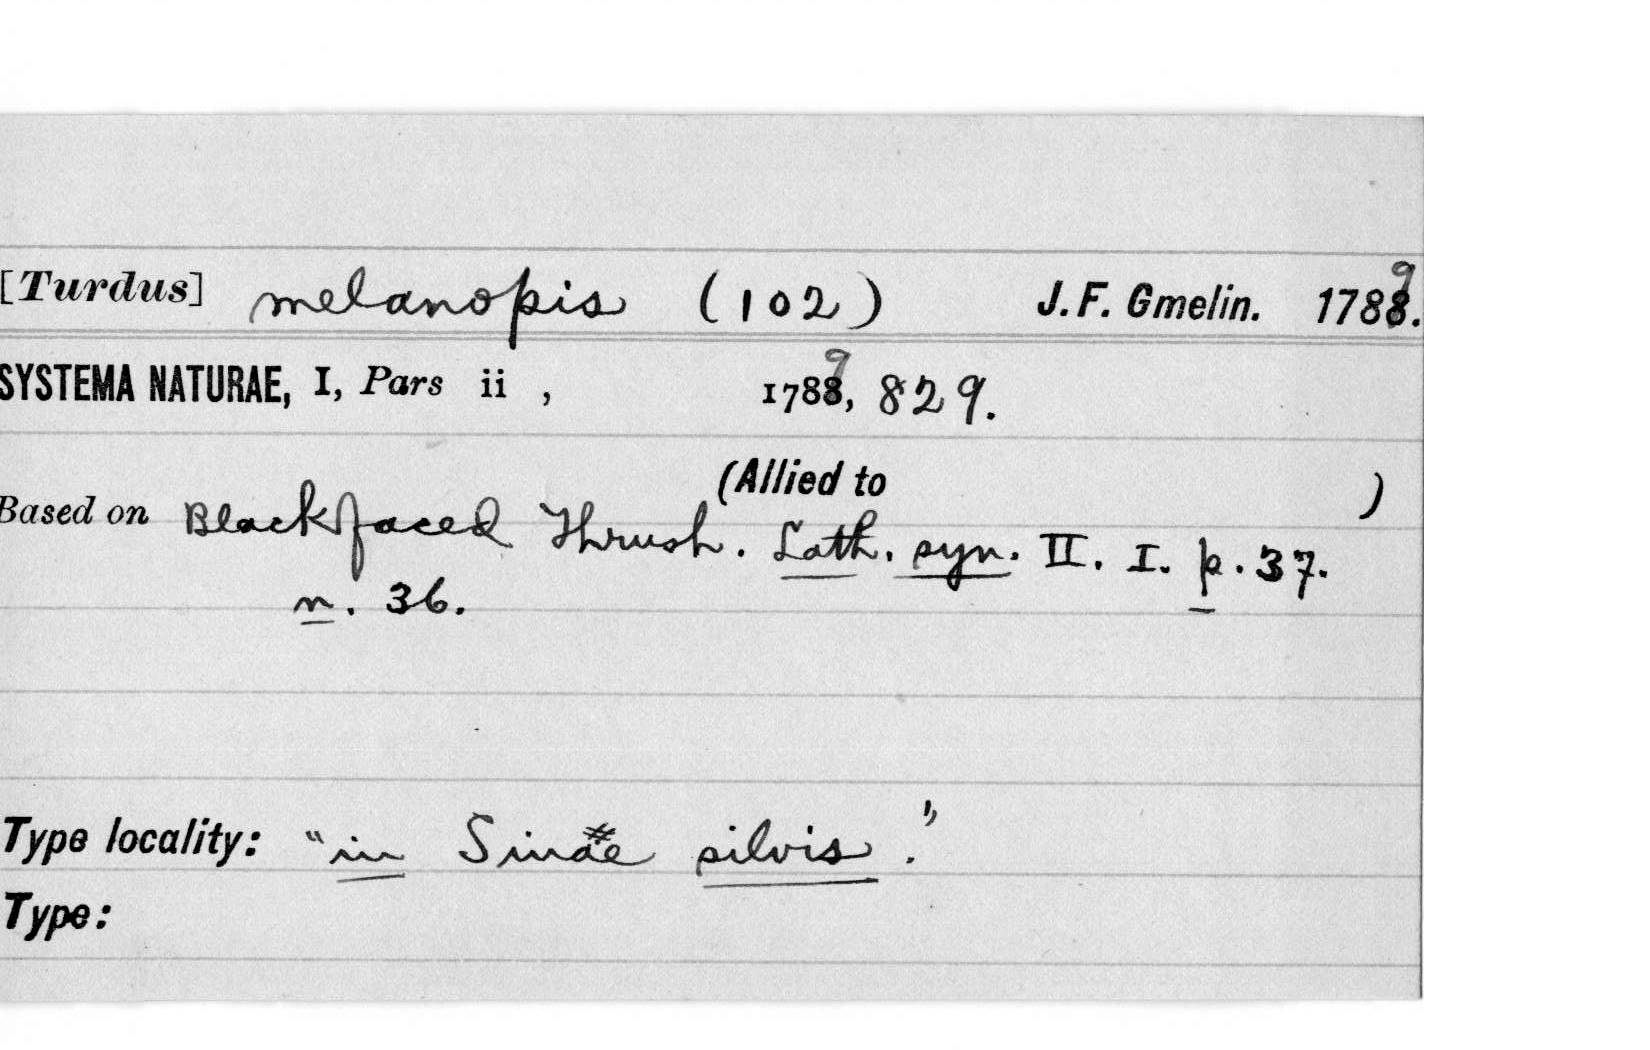 [Turdus] melanopis (102) J. F. Gmelin. 1789.
SYSTEMA NATURAE, I, Pars ii , 1789, 829.
(Allied to )
Based on Blackfaced Thrush. Lath. syn. II. I. p. 37.
n. 36.
Type locality: "in Sinae silvis."
Type: